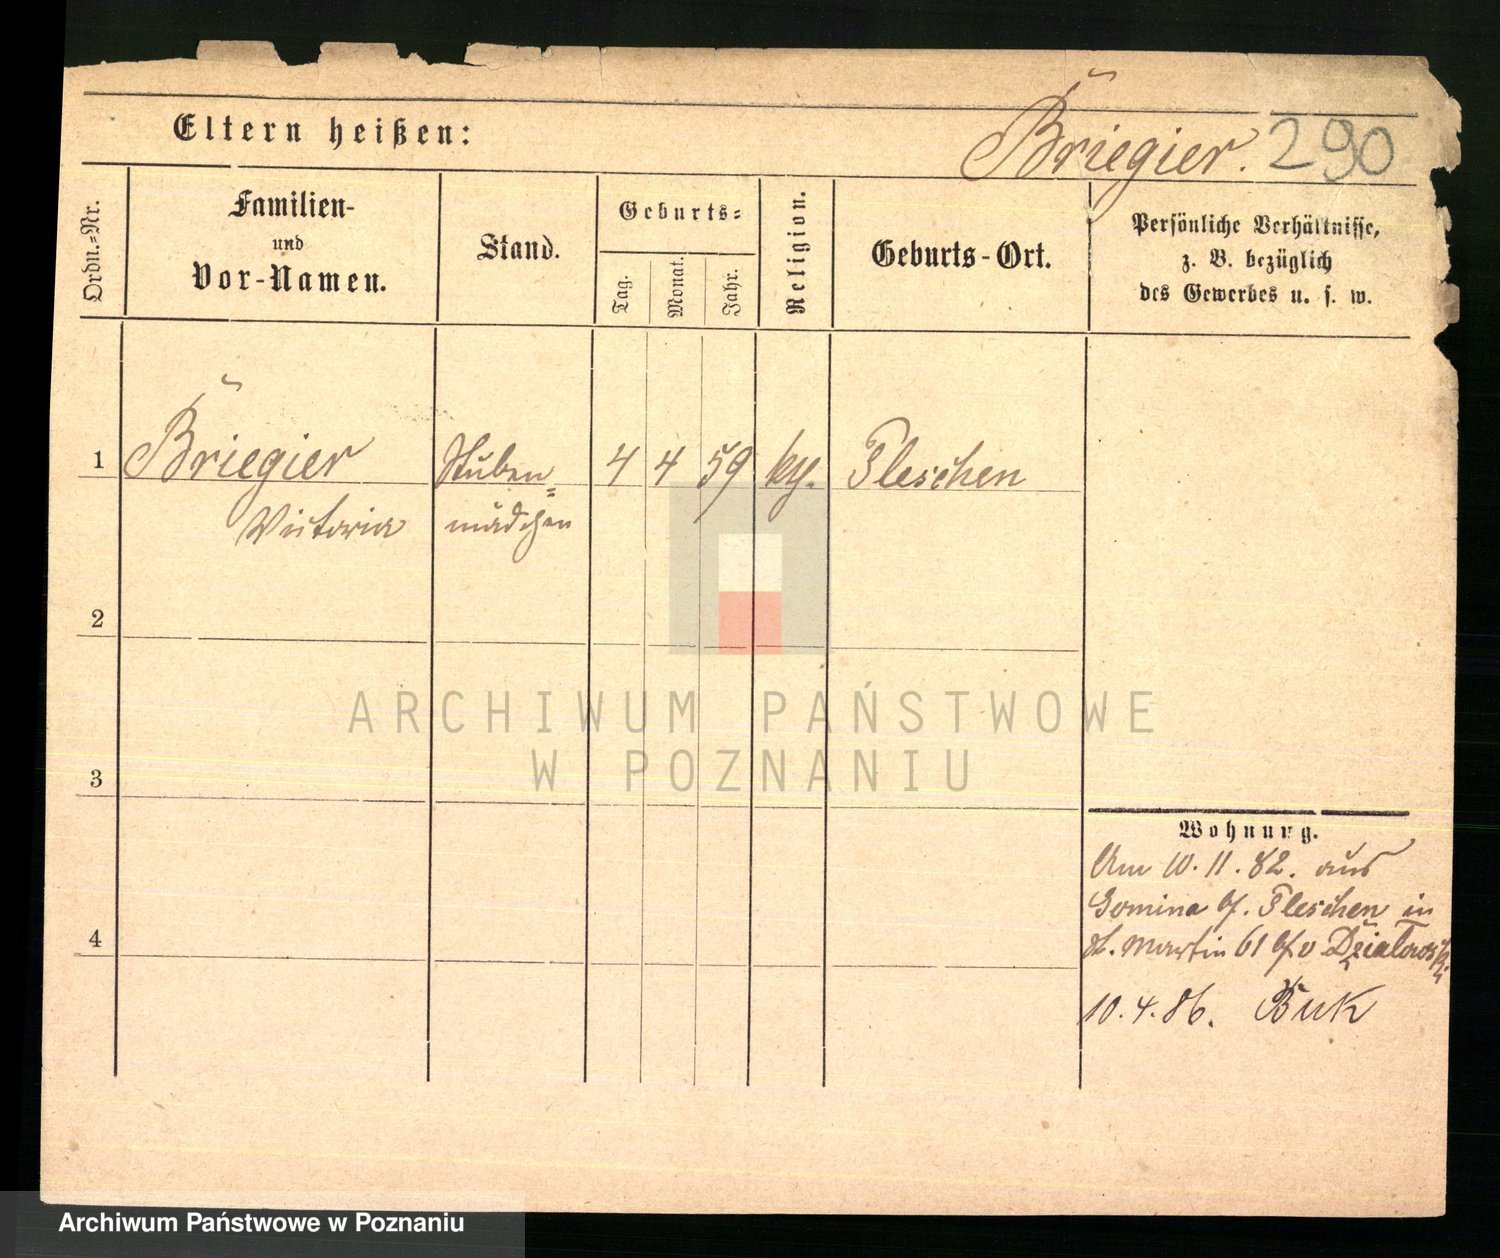 Eltern heißen:
Briegier. 290
Ordn.-Nr.
Familien-
und
Vor-Namen.
Stand.
Geburts-
Tag.
Monat.
Jahr.
Religion.
Geburts-Ort.
Persönliche Verhältnisse,
z. B. bezüglich
des Gewerbes u. s. w.
1 Briegier Stuben= 4 4 59 kth. Pleschen
Victoria mädchen
2
3
4
Wohnung.
Am 10.11.82. aus
b/. Pleschen in
St. Martin 61 b/v
10.4.86. Buk
ARCHIWUM PAŃSTWOWE
W POZNANIU
Archiwum Państwowe w Poznaniu